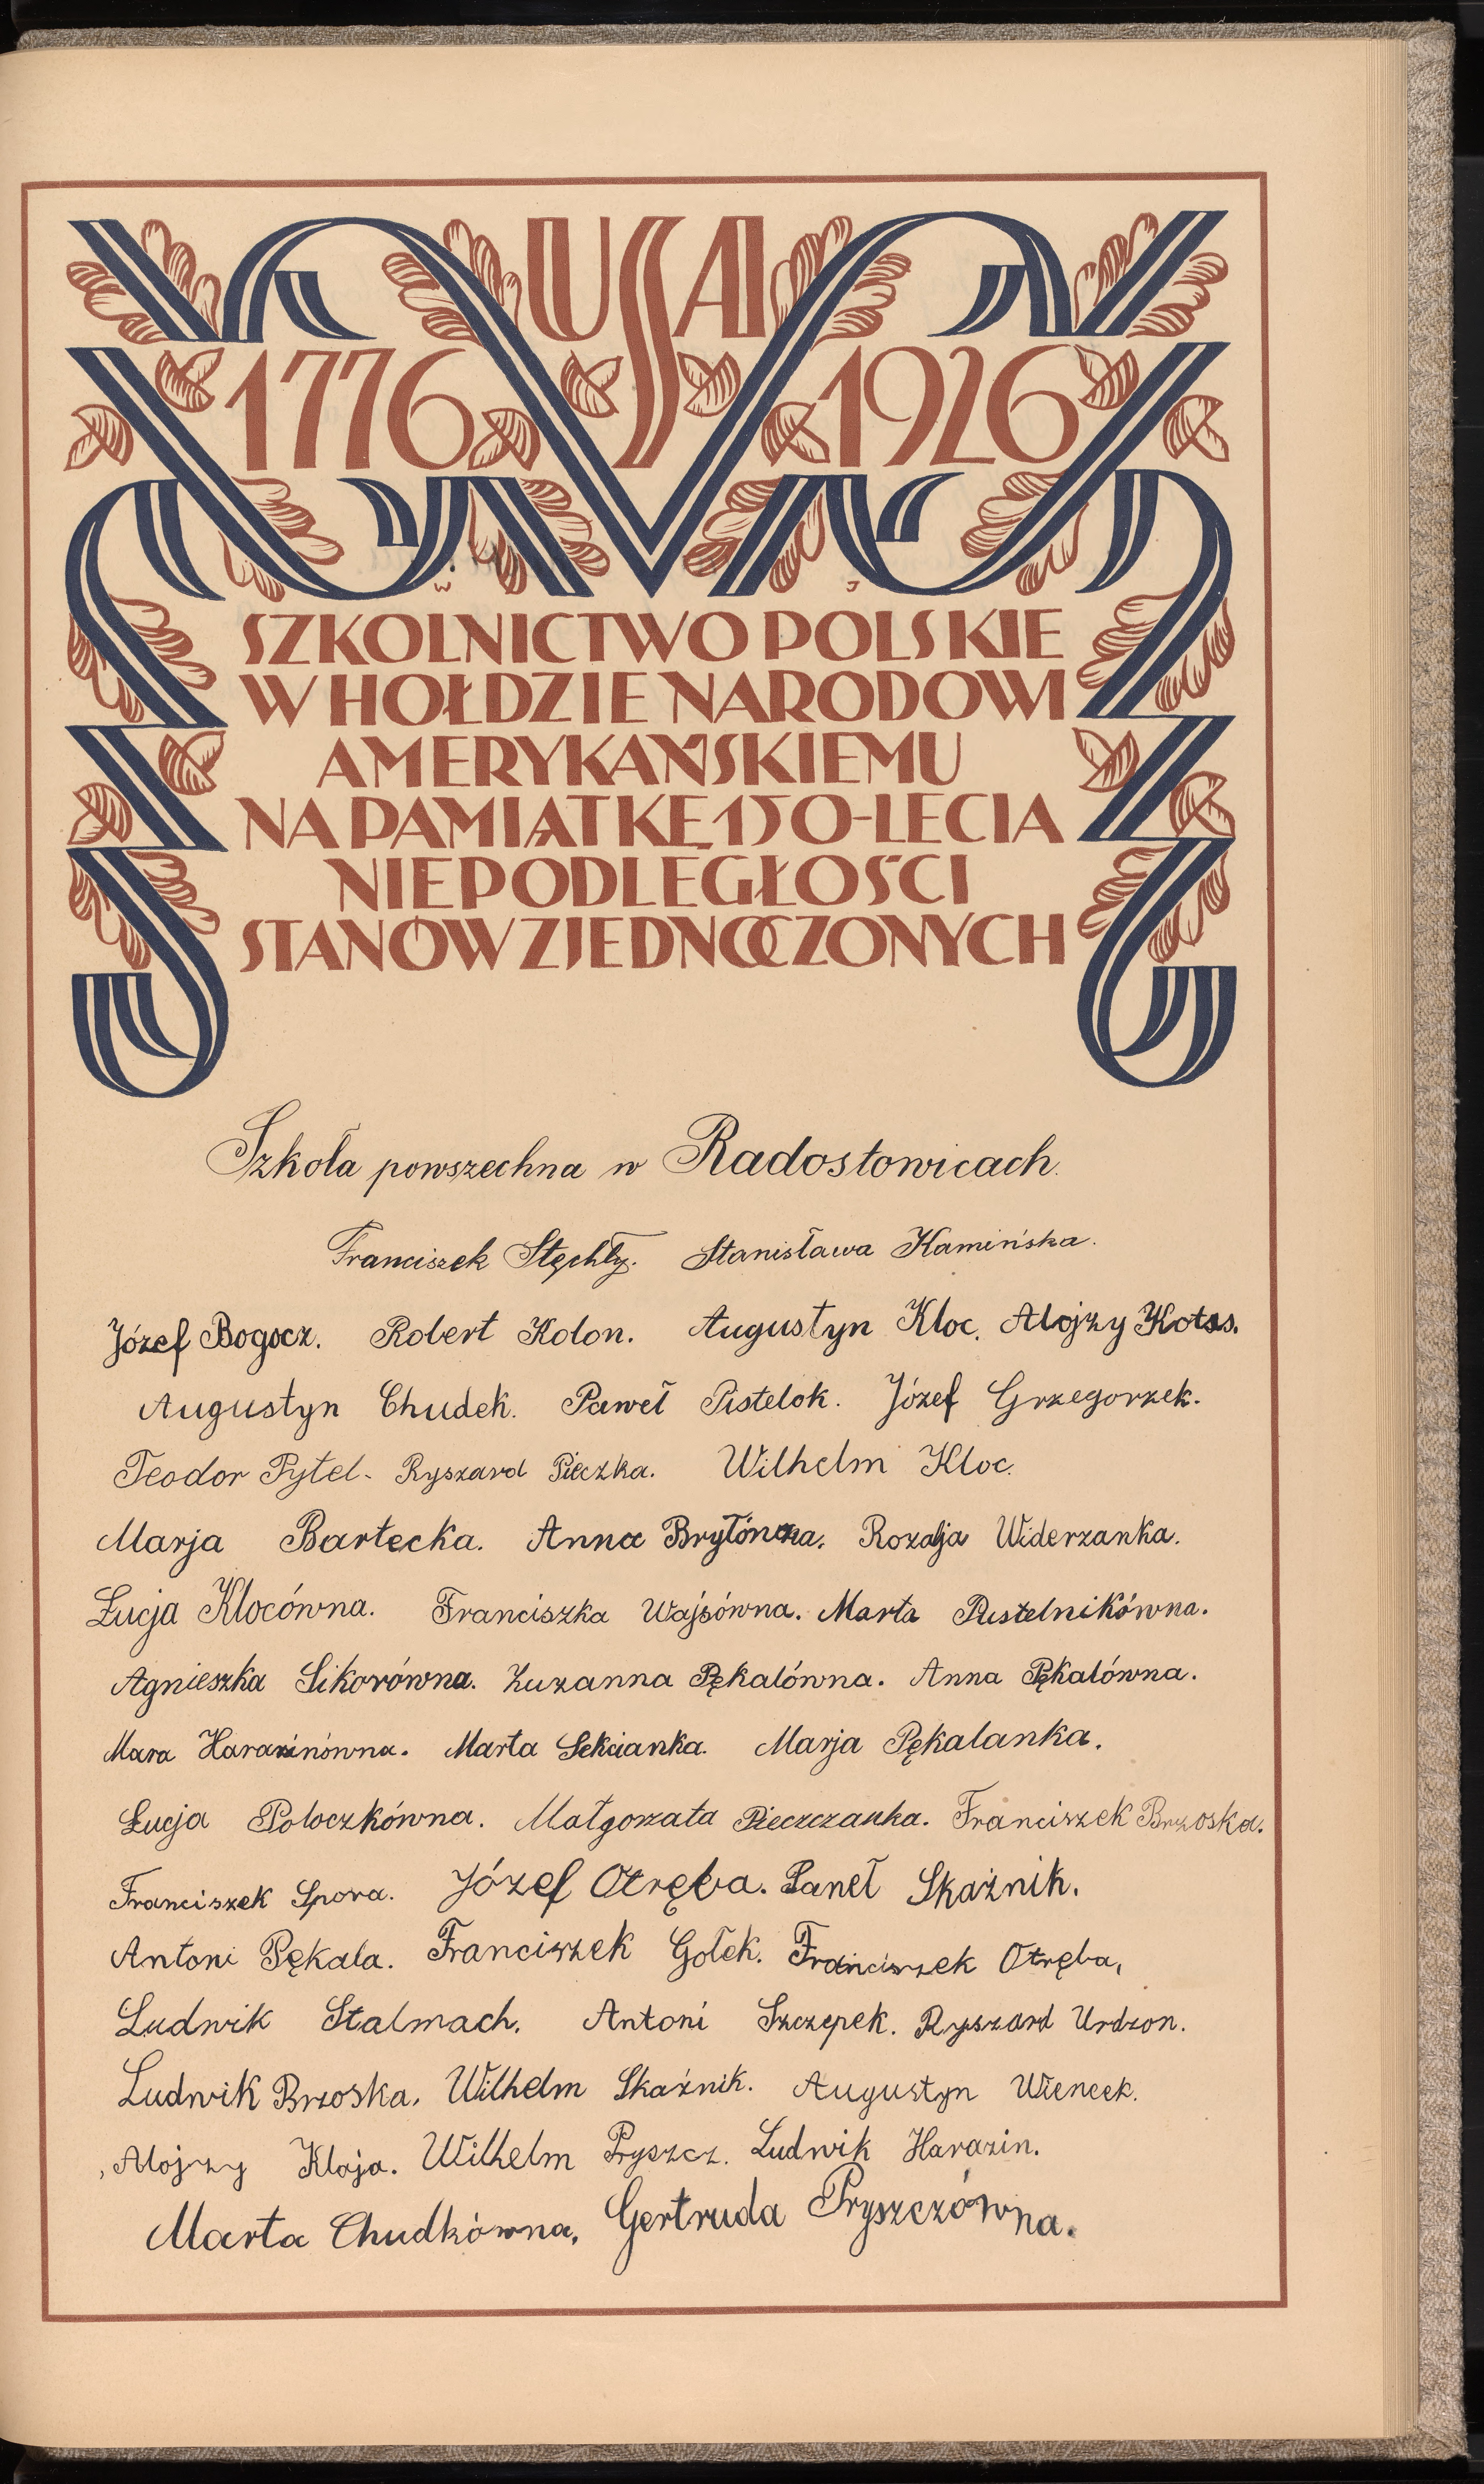 USA
1776 1926
W J
SZKOLNICTWO POLSKIE
W HOŁDZIE NARODOWI
AMERYKAŃSKIEMU
NA PAMIĄTKĘ 150-LECIA
NIEPODLEGŁOŚCI
STANÓW ZJEDNOCZONYCH
Szkoła powszechna w Radostowicach.
Franciszek Stęchły. Stanisława Kamińska.
Józef Bogocz. Robert Kolon. Augustyn Kloc. Alojzy
Augustyn Chudek. Paweł Pistelok. Józef Grzegorzek.
Teodor Pytel. Ryszard Pieczka. Wilhelm Kloc.
Marja Bartecka. Anna Rozalja Widerzanka.
Łucja Klocówna. Franciszka Wajsówna. Marta Pustelnikówna.
Agnieszka Sikorówna. Zuzanna Pękalówna. Anna Pękalówna.
Mara Harazinówna. Marta Sekcianka. Marja Pękalanka.
Łucja Poloczkówna. Małgorzata Pieczczanka. Franciszek Brzoska.
Franciszek Spora. Józef Otręba. Paweł Skaźnik.
Antoni Pękala. Franciszek Gołek. Franciszek Otręba,
Ludwik Stalmach. Antoni Szczepek. Ryszard Urdzon.
Ludwik Brzoska. Wilhelm Skaźnik. Augustyn Wiencek.
Alojzy Kloja. Wilhelm Pryszcz. Ludwik Harazin.
Marta Chudkówna, Gertruda Pryszczówna.